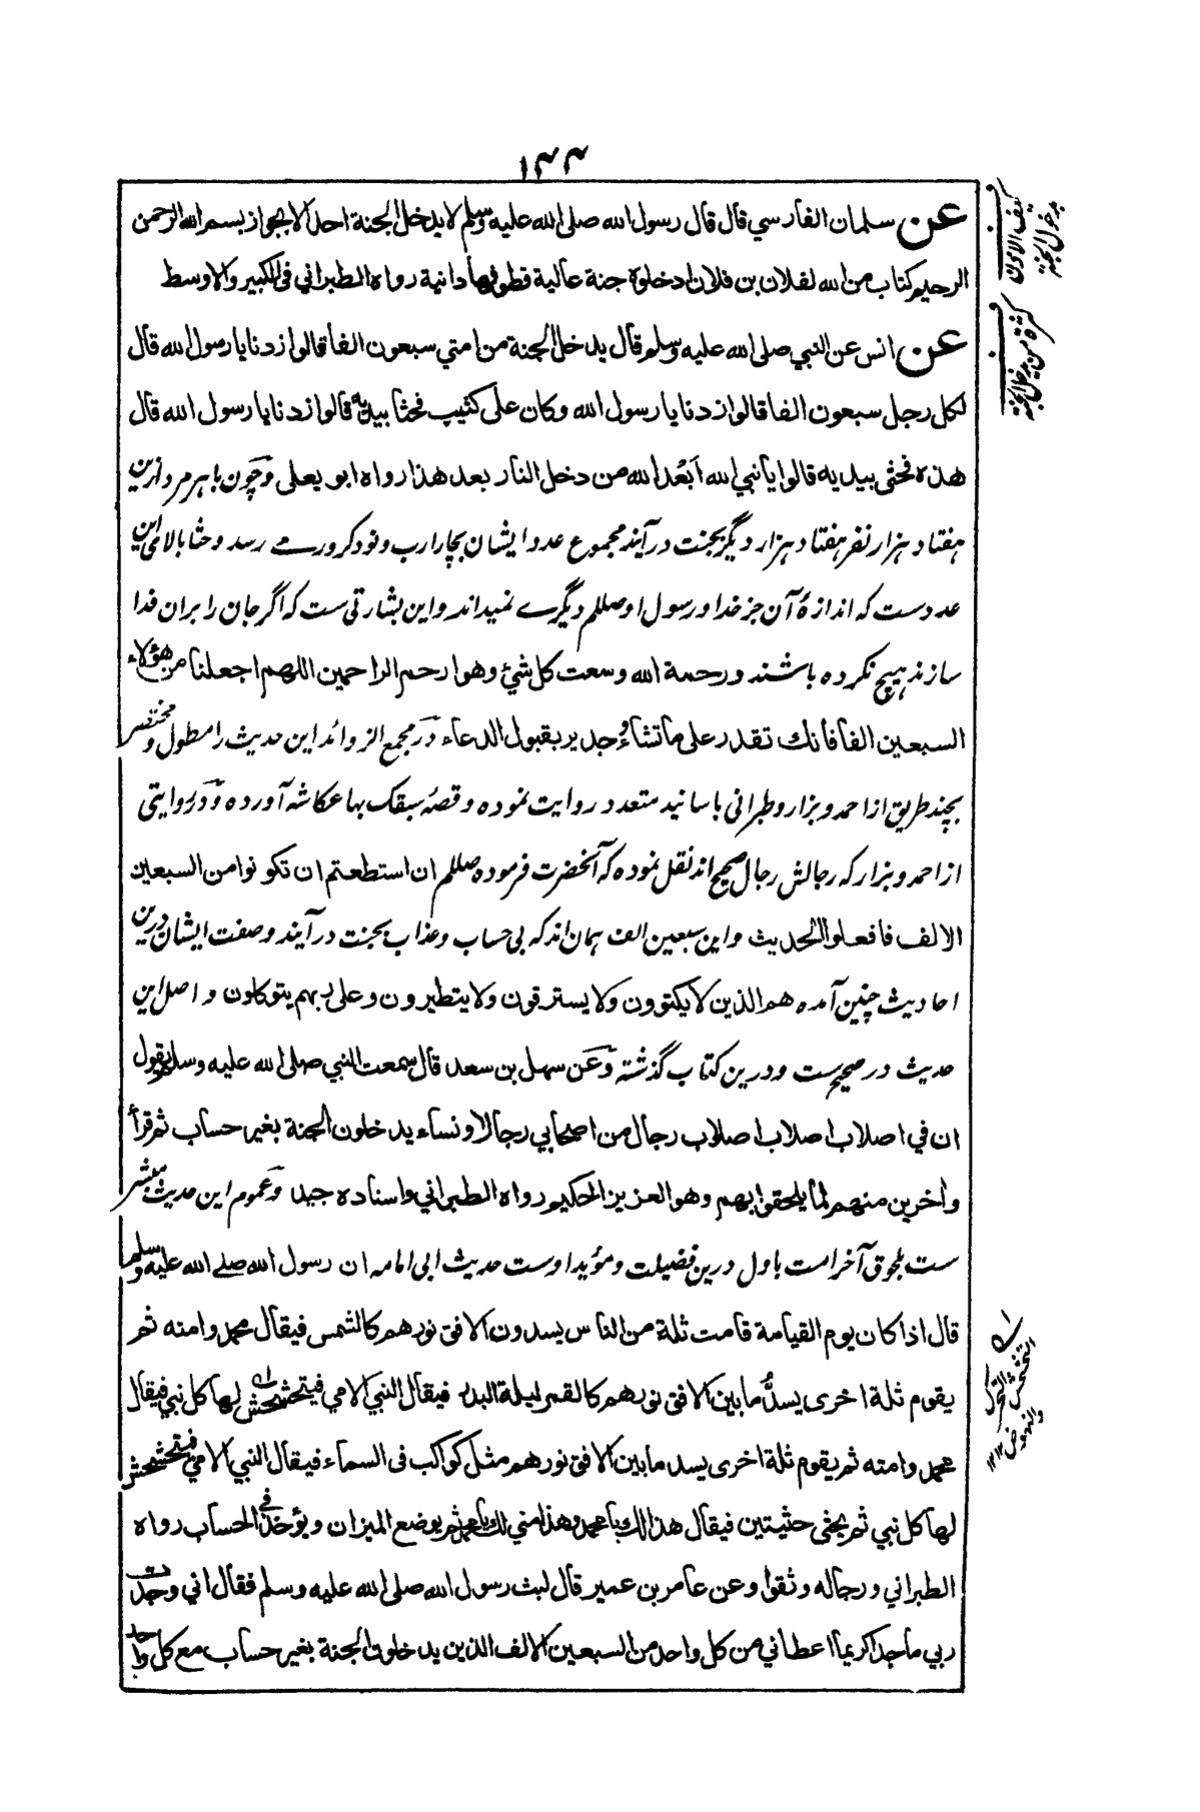 ۱۴۴
عن سلمان الفارسي قال قال رسول الله صلى الله عليه وسلم لا يدخل الجنة احد الا بجواز بسم الله الرحمن
الرحيم كتاب من الله لفلان بن فلان ادخلوه جنة عالية قطوفها دانية رواه الطبراني فى الكبير والاوسط
عن انس عن النبي صلى الله عليه وسلم قال يدخل الجنة من امتي سبعون الفا قالوا زدنا يا رسول الله قال
لكل رجل سبعون الفا قالوا زدنا يا رسول الله وكان على كثيب فحثا بيديه قالوا زدنا يا رسول الله قال
هذه فحثى بيديه قالوا يا نبي الله اَبْعَدَ الله من دخل النار بعد هذا رواه ابو يعلى وچون با هر مرد ازین
هفتاد هزار نفر هفتاد هزار دیگر بجنت در آیند مجموع عدد ایشان بچار ارب و نود کرور می رسد و حثا بالای این
عددست که اندازهٔ آن جز خدا و رسول او صللم دیگری نمیداند و این بشارتی ست که اگر جان را بران فدا
سازند هیچ نکرده باشند ورحمة الله وسعت كل شئ وهو ارحم الراحمين اللهم اجعلنا من هؤلاء
السبعين الفا فانك تقدر على ما تشاء وجدير بقبول الدعاء در مجمع الزوائد این حدیث را مطول و مختصر
بچند طریق از احمد و بزار و طبرانی باسانید متعدد روایت نموده و قصهٔ سبقك بها عكاشه آورده و در روایتی
از احمد و بزار که رجالش رجال صحیح اند نقل نموده که آنحضرت فرموده صللم ان استطعتم ان تكونوا من السبعين
الالف فافعلوا الحديث و این سبعین الف همان اند که بی حساب و عذاب بجنت در آیند و صفت ایشان درین
احادیث چنین آمده هم الذين لا يكتوون ولا يسترقون ولا يتطيرون وعلى ربهم يتوكلون و اصل این
حدیث در صحیح ست و درین کتاب گذشته وعن سهل بن سعد قال سمعت النبي صلى الله عليه وسلم يقول
ان في اصلاب اصلاب اصلاب رجال من اصحابي رجالا ونساء يدخلون الجنة بغير حساب ثم قرأ
واخرين منهم لما يلحقوا بهم وهو العزيز الحكيم رواه الطبراني واسناده جيد و عموم این حدیث مبشر
ست بلحوق آخر امت باول درین فضیلت و مؤید اوست حدیث ابی امامه ان رسول الله صلے الله عليه وسلم
قال اذا كان يوم القيامة قامت ثلة من الناس يسدون الافق نورهم كالشمس فيقال محمد وامته ثم
يقوم ثلة اخرى يسدُّ ما بين الافق نورهم كالقمر ليلة البدر فيقال النبي الامي فيتحشحش لها كل نبي فيقال
محمد وامته ثم يقوم ثلة اخرى يسد ما بين الافق نورهم مثل كواكب فى السماء فيقال النبي الامي فيتحشحش
لها كل نبي ثم يحثى حثيتين فيقال هذا لك يا محمد وهذا مني لك يا محمد ثم يوضع الميزان ويؤخذ في الحساب رواه
الطبراني ورجاله وثقوا وعن عامر بن عمير قال لبث رسول الله صلى الله عليه وسلم فقال اني وجدت
ربي ماجدا كريما اعطاني من كل واحد من السبعين الالف الذين يدخلون الجنة بغير حساب مع كل واحد
كيف الاذن
بدخول الجنة
كثرة من يدخل الجنة
اى
التحشحش التحرك
والنهوض ۱۲